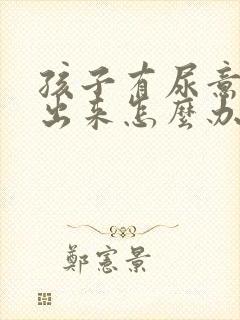 孩子有尿意
出来怎麼办
鄭憲景